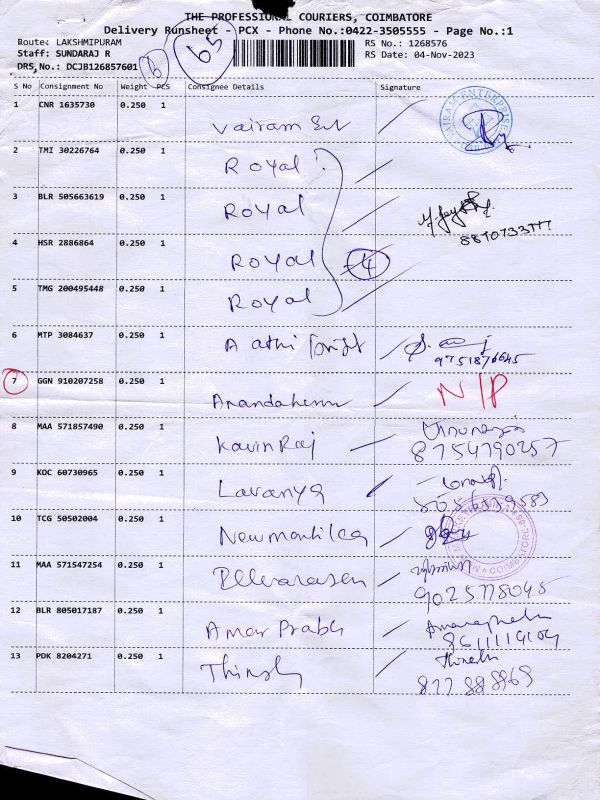 THE PROFESSIONAL COURIERS, COIMBATORE
Delivery Runsheet - PCX - Phone No.:0422-3505555 - Page No.:1
Route: LAKSHMIPURAM RS No.: 1268576
Staff: SUNDARAJ R RS Date: 04-Nov-2023
DRS,No.: DCJB126857601
S No Consignment No Weight PCS Consignee Details Signature
1 CNR 1635730 0.250 1 Vairam
2 TMI 30226764 0.250 1 Royal
3 BLR 505663619 0.250 1 Royal
8870733777
4 HSR 2886864 0.250 1 Royal 4
5 TMG 200495448 0.250 1 Royal
6 MTP 3084637 0.250 1 Aathi
7 GGN 910207258 0.250 1 N/P
8 MAA 571857490 0.250 1 KavinRaj
8754790257
9 KOC 60730965 0.250 1 Lavanya
10 TCG 50502004 0.250 1
11 MAA 571547254 0.250 1
9025778045
12 BLR 805017187 0.250 1 Amar Prabh
13 PDK 8204271 0.250 1